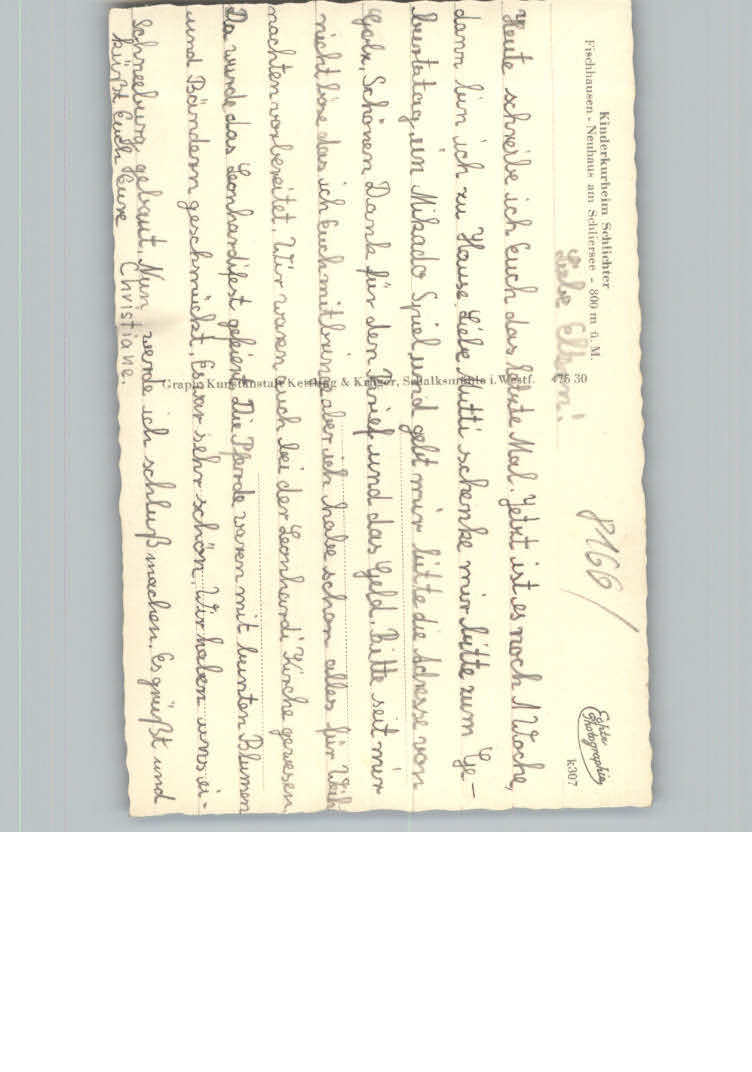 Kinderkurheim Schlichter
Fischhausen - Neuhaus am Schliersee - 800 m ü. M.
8166/
Echte Photographie
k307
Liebe Eltern!
Heute schreibe ich Euch das letzte Mal. Jetzt ist es noch 1 Woche,
dann bin ich zu Hause. Liebe Mutti schenke mir bitte zum Ge-
burtstag ein Mikado Spiel und gebt mir bitte die Adresse von
Schönen Dank für den Brief und das Geld. Bitte seit mir
nicht böse das ich Euch mitbringe aber ich habe schon alles für Weih
nachten vorbereitet. Wir waren auch bei der Leonhardi Kirche gewesen,
Da wurde das Leonhardifest gefeiert. Die Pferde waren mit bunten Blumen
und Bändern geschmückt. Es war sehr schön. Wir haben uns ei-
Schneeburg gebaut. Nun werde ich schluß machen. Es grüßt und
küßt Euch Eure
Christiane.
Graph. Kunstanstalt Kettling & Krüger, Schalksmühle i. Westf. 426 30